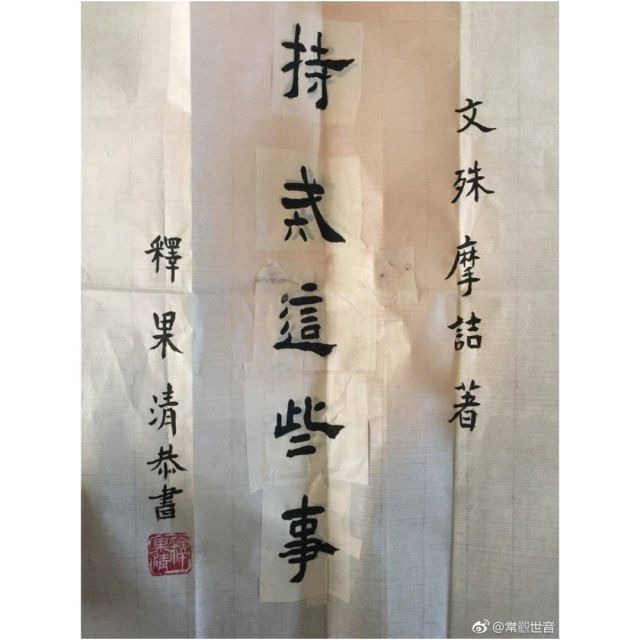 文殊摩詰著
持戒這些事
釋果清恭書
釋果清
@常觀世音